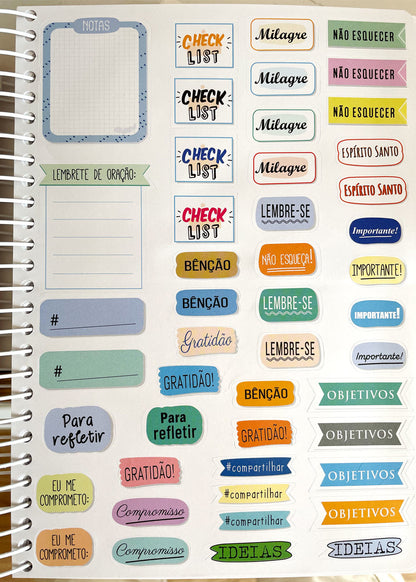 NOTAS
LEMBRETE DE ORAÇÃO:
#
#
Para
refletir
Para
refletir
EU ME
COMPROMETO:
EU ME
COMPROMETO:
GRATIDÃO!
Compromisso
Compromisso
CHECK
LIST
CHECK
LIST
CHECK
LIST
CHECK
LIST
BÊNÇÃO
BÊNÇÃO
Gratidão
GRATIDÃO!
Milagre
Milagre
Milagre
Milagre
LEMBRE-SE
NÃO ESQUEÇA!
LEMBRE-SE
LEMBRE-SE
BÊNÇÃO
GRATIDÃO!
#compartilhar
#compartilhar
#compartilhar
IDEIAS
NÃO ESQUECER
NÃO ESQUECER
NÃO ESQUECER
ESPÍRITO SANTO
ESPÍRITO SANTO
Importante!
IMPORTANTE!
IMPORTANTE!
Importante!
OBJETIVOS
OBJETIVOS
OBJETIVOS
OBJETIVOS
IDEIAS